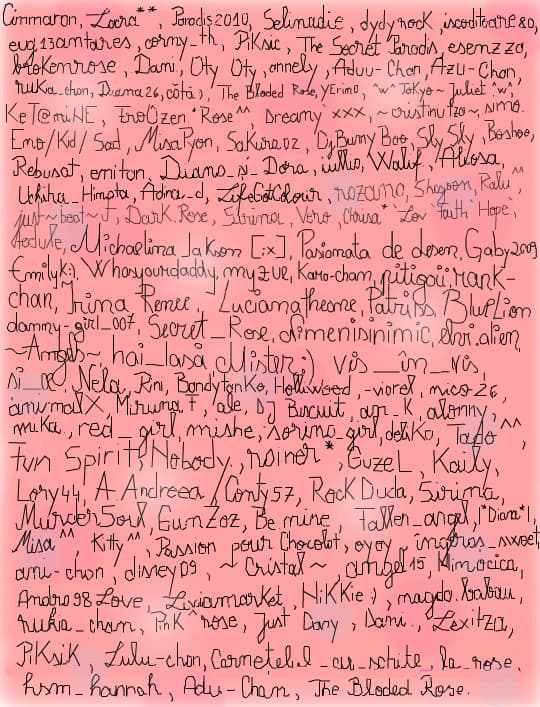 Cimmaron, Lora**, Paradis2010, Selinudie, dydyrock, iscoditoare80,
eug13antares, corny_th, PiKsic, The Secret Paradis, esenzza,
brokenrose, Dani, Oty Oty, annely, Aduu-Chan, Azu-Chan,
ruka_chan, Duama26, The Bloded Rose, yErimO, ^w^ Tokyo~ Juliet ^w^,
KeT@miNE, Rose^^, Dreamy xxx, ~cristinutzo~, simo.
Emo/Kid/Sad, MisaPyon, Sakura02, DjBunny Boo, Sly_Sky, Boshoo,
Rebusat, emiton, Diana_si_Dora, iulia, Walif, Aliosa,
Uchiha_Himpta, Adina_d, LifeGotColour, rozano, Shagoon, Ralu^^
just~beat~it, Dark.Rose, Sibrina, Vero, Chrisa* Lov faith Hope,
fedule, Michaelina Jakson [:x], Pasionata de desen, Gaby2009
Emilyk:), Whosyourdaddy, myzue, Kano-cham, pitigoii, rank-
chan, Irina Renee, Lucianatheone, Patriss BlueLion
dammy-girl_007, Secret_Rose, dimenisinimic, elvi.alien,
~Angel~ hai_lasa Mister:) vis_in_vis,
Nela, Rini, BandytanKo, Holliwood, -viorel, nico26,
animalX, Miruna t, ale, Dj Biscuit, agr_K, alonny,
mika., red_girl, mishe, sorina_girl, deliKa, Tado^^,
Fun Spirit, Nobody, roiner*, GuzeL, Kaily,
Lory44, A.Andreea, Conty57, RocK Duda, Sirima,
MurderSoul, GunZoz, Be mine, fallen_angel, |*Diana*|,
Misa^^, Kitty^^, Passion pour Chocolat, oyoy, ingeras_sweet,
ani-chan, disney09, ~Cristal~ angel15, Mimocica,
Andra98Love, Liviamarket, NiKKie:), magda.babau,
rukia_chan, PinK^rose, Just Dany, Dani., Lexitza,
PiKsiK, Lulu-chan, Carnetelel_cu_schite_la_rose,
hsm_hannah, Adu-Chan, The Bloded Rose.